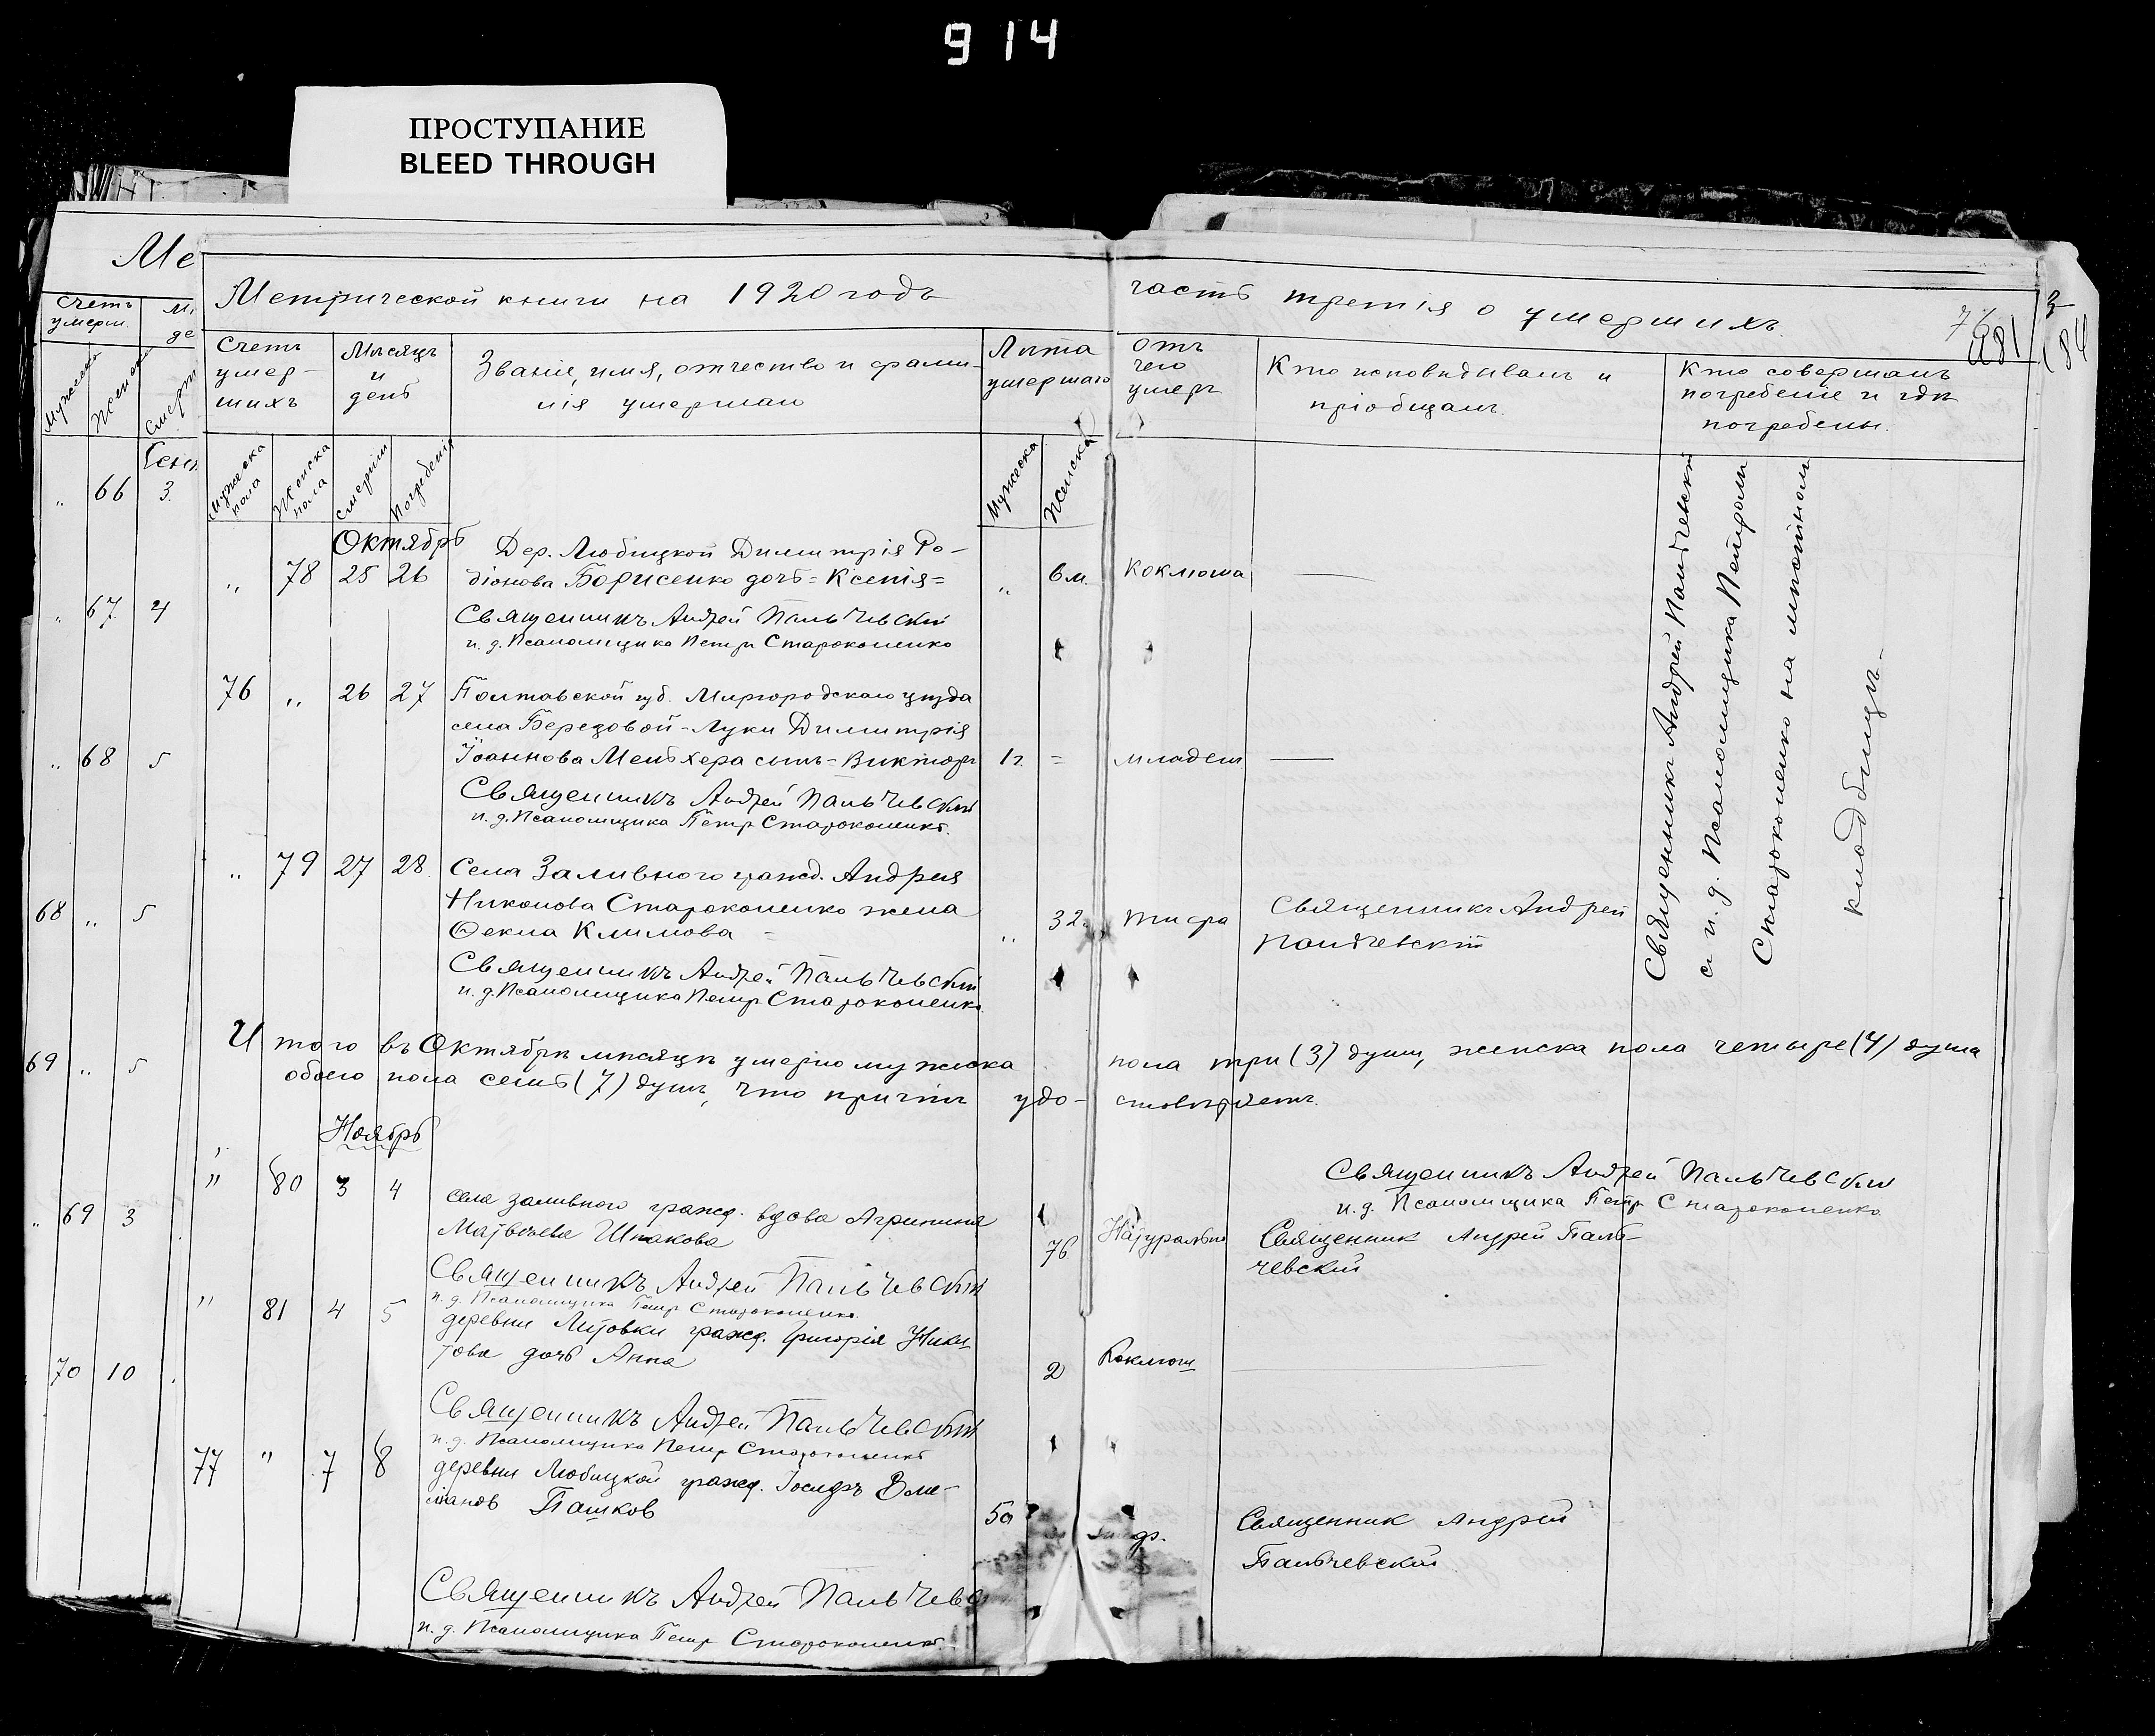 914
ПРОСТУПАНИЕ
BLEED THROUGH
Ме
Метрической книги на 1920 годъ
часть третія о умершихъ
76
181
3
184
Счетъ умерш.
Мужеска
Женска
Смерти
Сен
" 66 3.
" 67 4
" 68 5
68 " 5
69 " 5
" 69 3
70 10
Счетъ умер-
шихъ
Мѣсяцъ
и
день
Званіе, имя, отчество и фами-
лія умершаго
Лѣта
умершаго
отъ
чего
умеръ
Кто исповѣдывалъ и
пріобщалъ.
Кто совершалъ
погребеніе и гдѣ
погребены.
Мужеска
пола
Женска
пола
Смерти
Погребенія
Мужеска
Женска
Октябрь
" 78 25 26
Дер. Любицкой Димитрія Ро-
діонова Борисенко дочь = Ксенія =
" 6 м. Коклюша
Священникъ Андрей Пальчевскій
и. д. Псаломщика Петръ Староконенко
76 " 26 27
Полтавской губ. Миргородскаго уѣзда
села Березовой-Луки Димитрія
Іоаннова Мельхера сынъ = Викторъ
1 г. = младен
Священникъ Андрей Пальчевскій
и. д. Псаломщика Петр Староконенко.
" 79 27 28.
Села Заливного гражд. Андрея
Никонова Староконенко жена
Ѳекла Климова =
" 32. тифа
Священникъ Андрей
Пальчевскій
Священникъ Андрей Пальчевскій
и. д. Псаломщика Петр Староконенко
Священникъ Андрей Пальчевскій
съ и. д. Псаломщика Петромъ
Староконенко на мѣстном
кладбищѣ.
Итого въ Октябрѣ мѣсяцѣ умерло мужеска пола три (3) души, женска пола четыре (4) душа
обоего пола семь (7) душъ, что причтъ удо- стовѣряетъ.
Священникъ Андрей Пальчевскій
и. д. Псаломщика Петр Староконенко
Ноябрь
" 80 3 4
села Заливного гражд. вдова Агрипина
Матвѣева Шпакова
76 Натурально
Священник Андрей Паль-
чевский
Священникъ Андрей Пальчевскій
и. д. Псаломщика Петр Староконенко.
" 81 4 5
деревни Литовки гражд. Григорія Ники-
това дочь Анна
2 Коклюш
Священникъ Андрей Пальчевскій
и. д. Псаломщика Петр Староконенко
77 " 7 8
деревни Любицкой гражд. Іосифъ
Пашков
50
Священник Андрей
Пальчевский
Священникъ Андрей Пальчевс
и. д. Псаломщика Петр Староконенко.